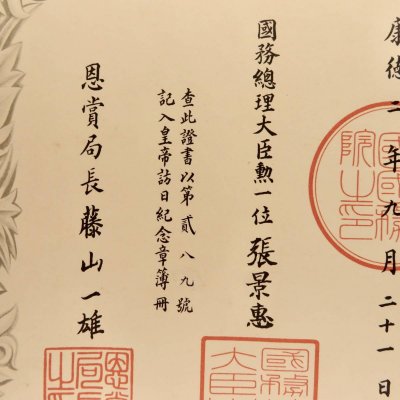 康德二年九月二十一日
國務總理大臣勲一位張景惠
查此證書以第貳八九號
記入皇帝訪日紀念章簿冊
恩賞局長藤山一雄